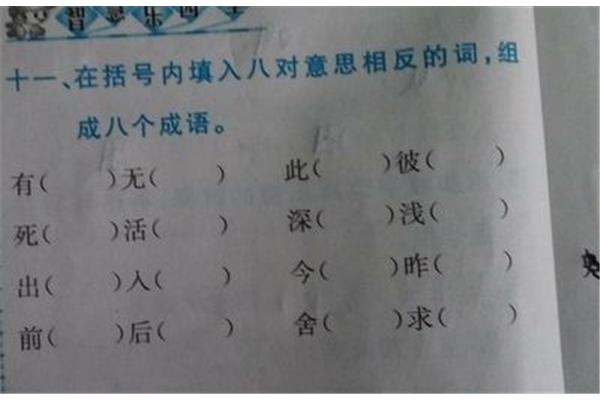 十一、在括号内填入八对意思相反的词,组
成八个成语。
有(　　)无(　　)　　此(　　)彼(　　)
死(　　)活(　　)　　深(　　)浅(　　)
出(　　)入(　　)　　今(　　)昨(　　)
前(　　)后(　　)　　舍(　　)求(　　)